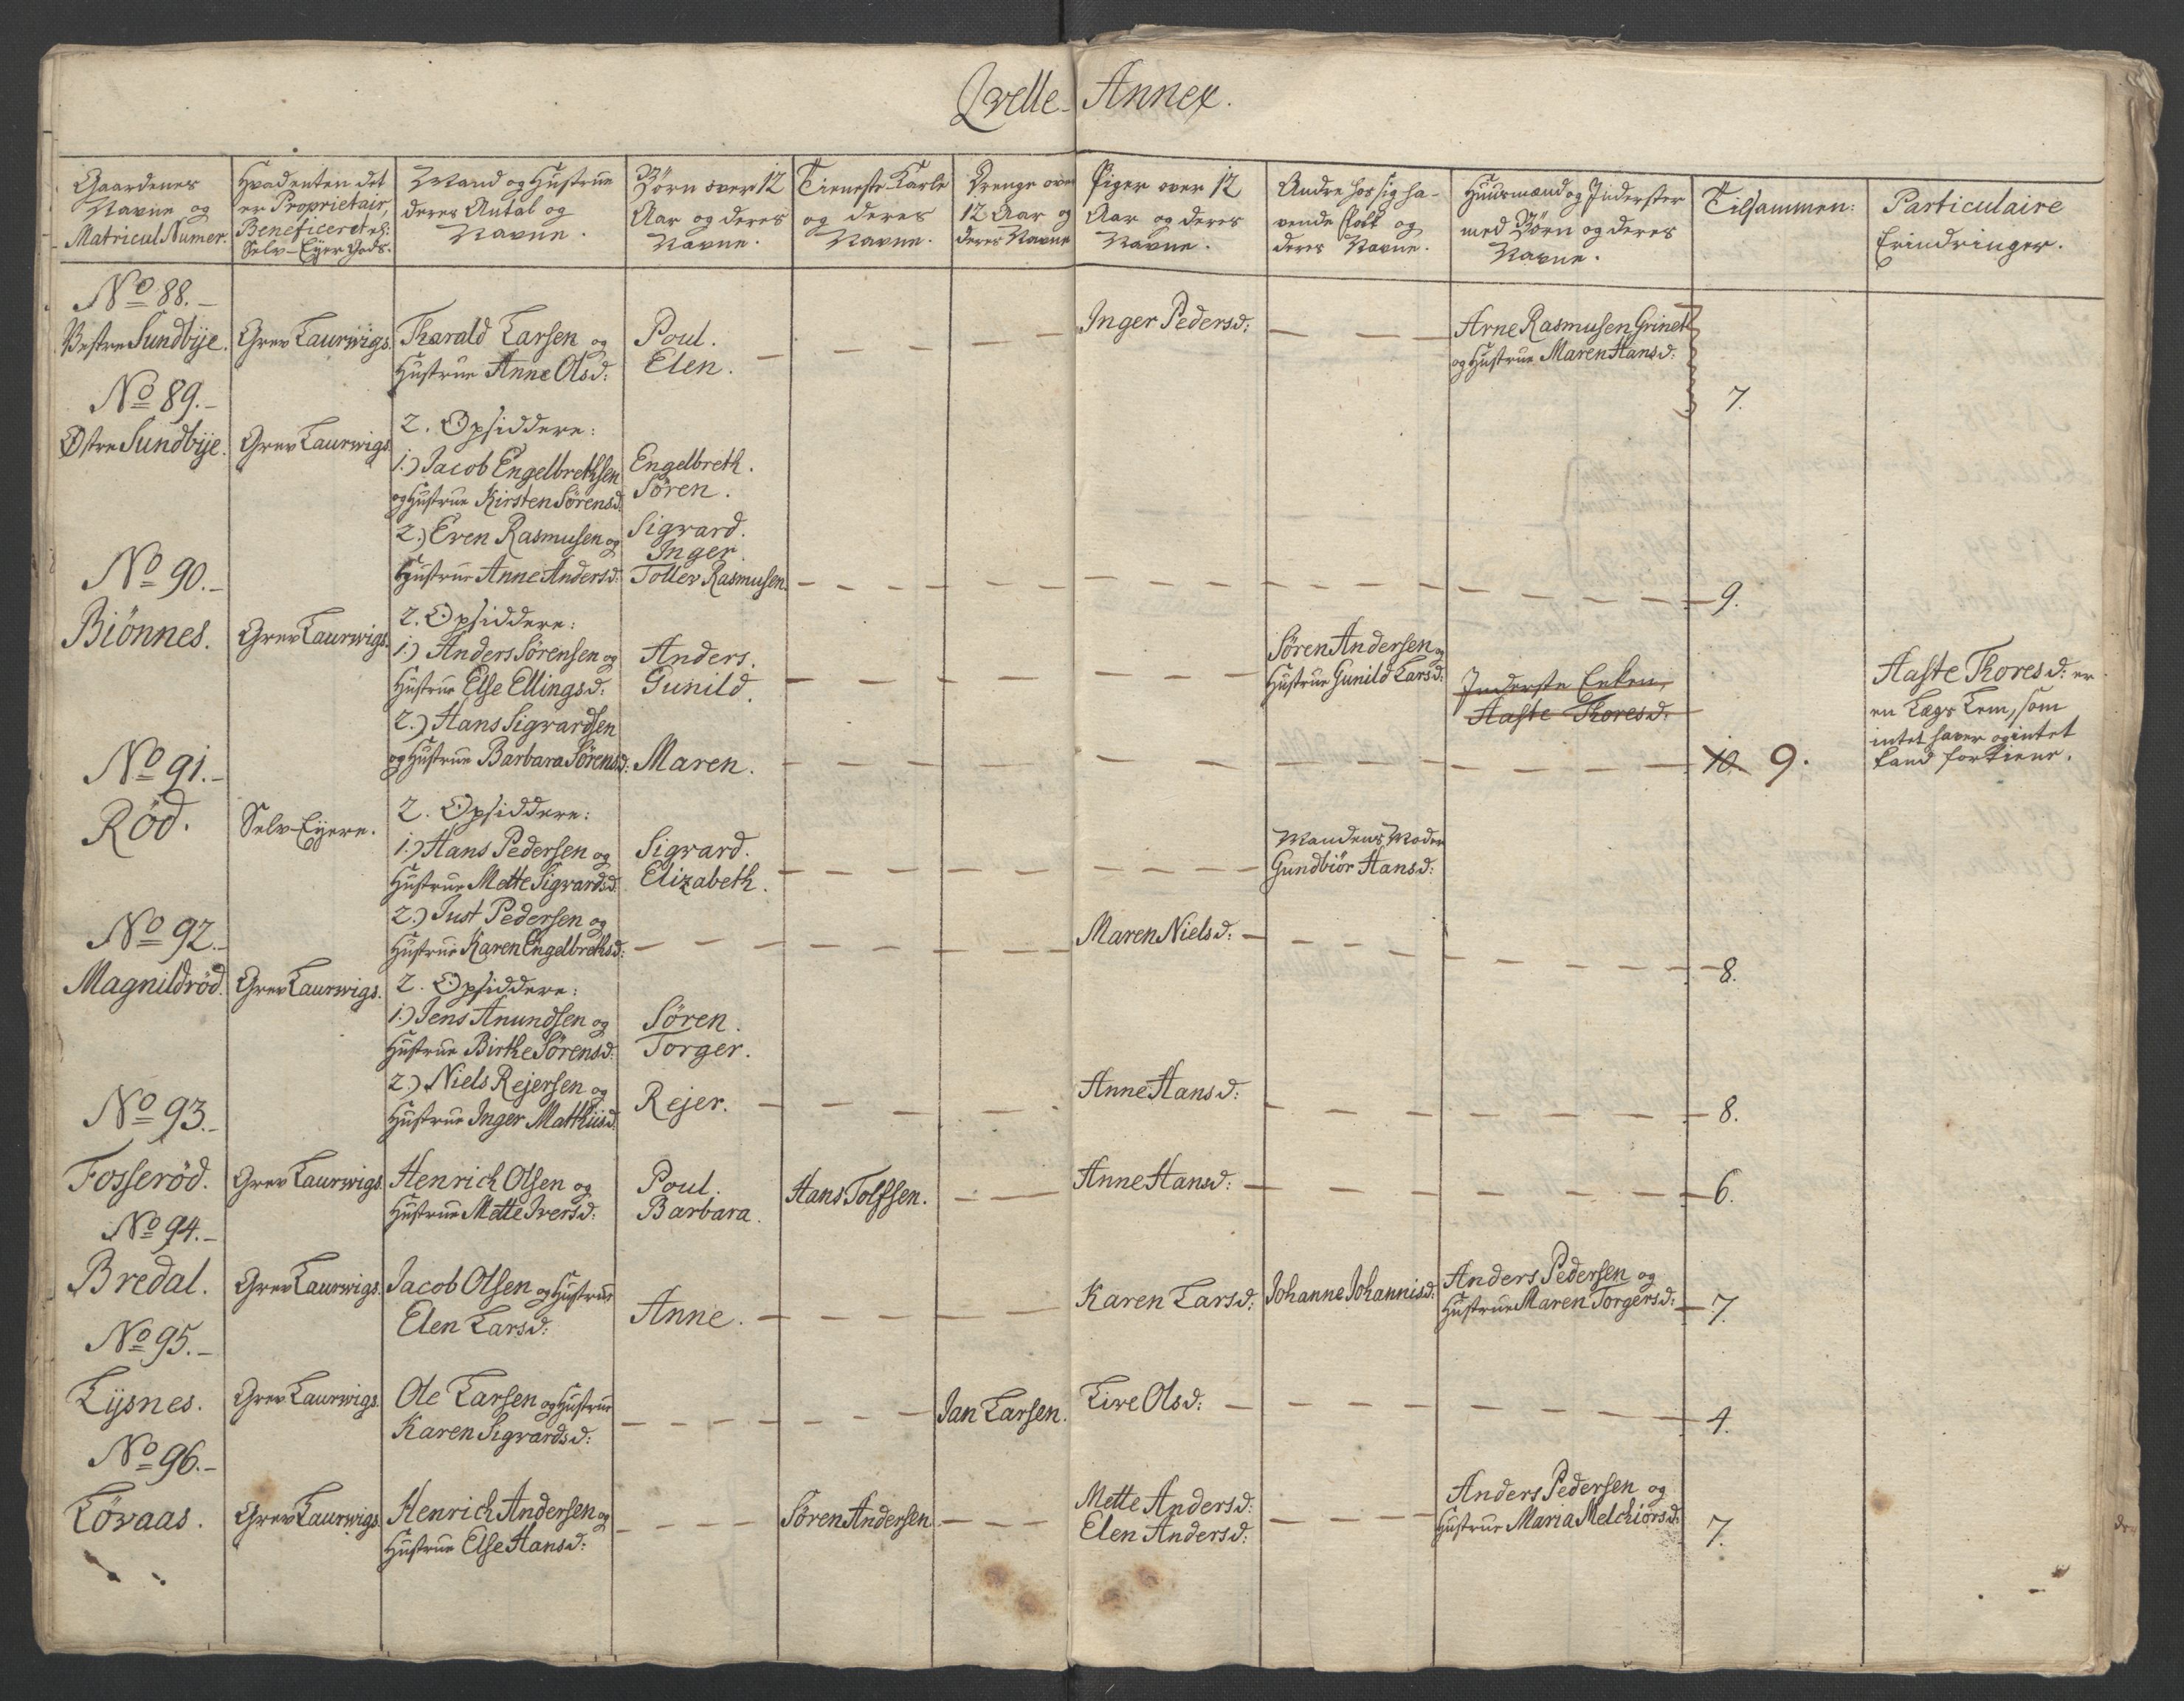 Qvelle- Annex.
Gaardenes Navne og Matricul Numer.
Hvadenten det er Proprietair, Beneficeret el: Selv-Eyer Gods.
Mand og Hustrue deres Antal og Navne.
Børn over 12 Aar og deres Navne.
Tieneste Karle og deres Navne.
Drenge over 12 Aar og deres Navne
Piger over 12 Aar og deres Navne.
Andre hos sig ha-vende Folk og deres Navne.
Huusmænd og Inderster med Børn og deres Navne.
Tilsammen:
Particulaire Erindringer.
No 88.-
Vestre Sundbye. Grev Laurwigs. Tharald Larsen og Poul. Inger Pedersd: Arne Rasmusen Grinet
Hustrue Anne Olsd: Elen. og Hustrue Maren Hansd:
7.
No 89.-
2. Opsiddere:
Østre Sundbye. Grev Laurwigs.
1.) Jacob Engelbrethsen Engelbreth.
og Hustrue Kirsten Sörensd. Sören.
2.) Even Rasmusen og Sigvard.
Inger
Hustrue Anne Andersd: Toller Rasmusen. 9.
No 90.-
2. Opsiddere:
Biönnes. Grev Laurwigs.
1.) Anders Sörensen og Anders. Sören Andersen og
Hustrue Else Ellingsd: Gunild. Hustrue Gunild Larsd: Inderste Enken, Aaste Thoresd: er
Aaste Thoresd: en Lægs Lem, som
2.) Hans Sigvardsen intet haver og intet
og Hustrue Barbara Sörensd: Maren. 10. 9. kand fortiene.
No 91.-
2. Opsiddere:
Röd. Selv-Eyere.
1.) Hans Pedersen og Sigvard. Mandens Moder
Hustrue Mette Sigvardsd: Elizabeth. Gundbiör Hansd:
2.) Just Pedersen og Maren Nielsd:
Hustrue Karen Engelbrethsd: 8.
No 92.-
Magnildröd. Grev Laurwigs. 2. Opsiddere:
1.) Jens Anundsen og Sören.
Hustrue Birthe Sörensd: Torger.
2.) Niels Rejersen og Rejer. Anne Hansd:
Hustrue Inger Mathiisd: 8.
No 93.-
Fosseröd. Grev Laurwigs. Henrich Olsen og Poul. Hans Tolfsen. Anne Hansd: 6.
Hustrue Mette Iversd: Barbara.
No 94.-
Bredal. Grev Laurwigs. Jacob Olsen og Hustrue Anne. Karen Larsd: Johanne Johannisd: Anders Pedersen og
Elen Larsd: Hustrue Maren Torgersd: 7.
No 95.-
Lysnes. Grev Laurwigs. Ole Larsen og Hustrue Jan Larsen. Live Olsd: 4.
Karen Sigvardsd:
No 96.-
Lövaas. Grev Laurwigs. Henrich Andersen og Sören Andersen Mette Andersd: Anders Pedersen og
Hustrue Else Hansd: Elen Andersd: Hustrue Maria Melchiorsd: 7.